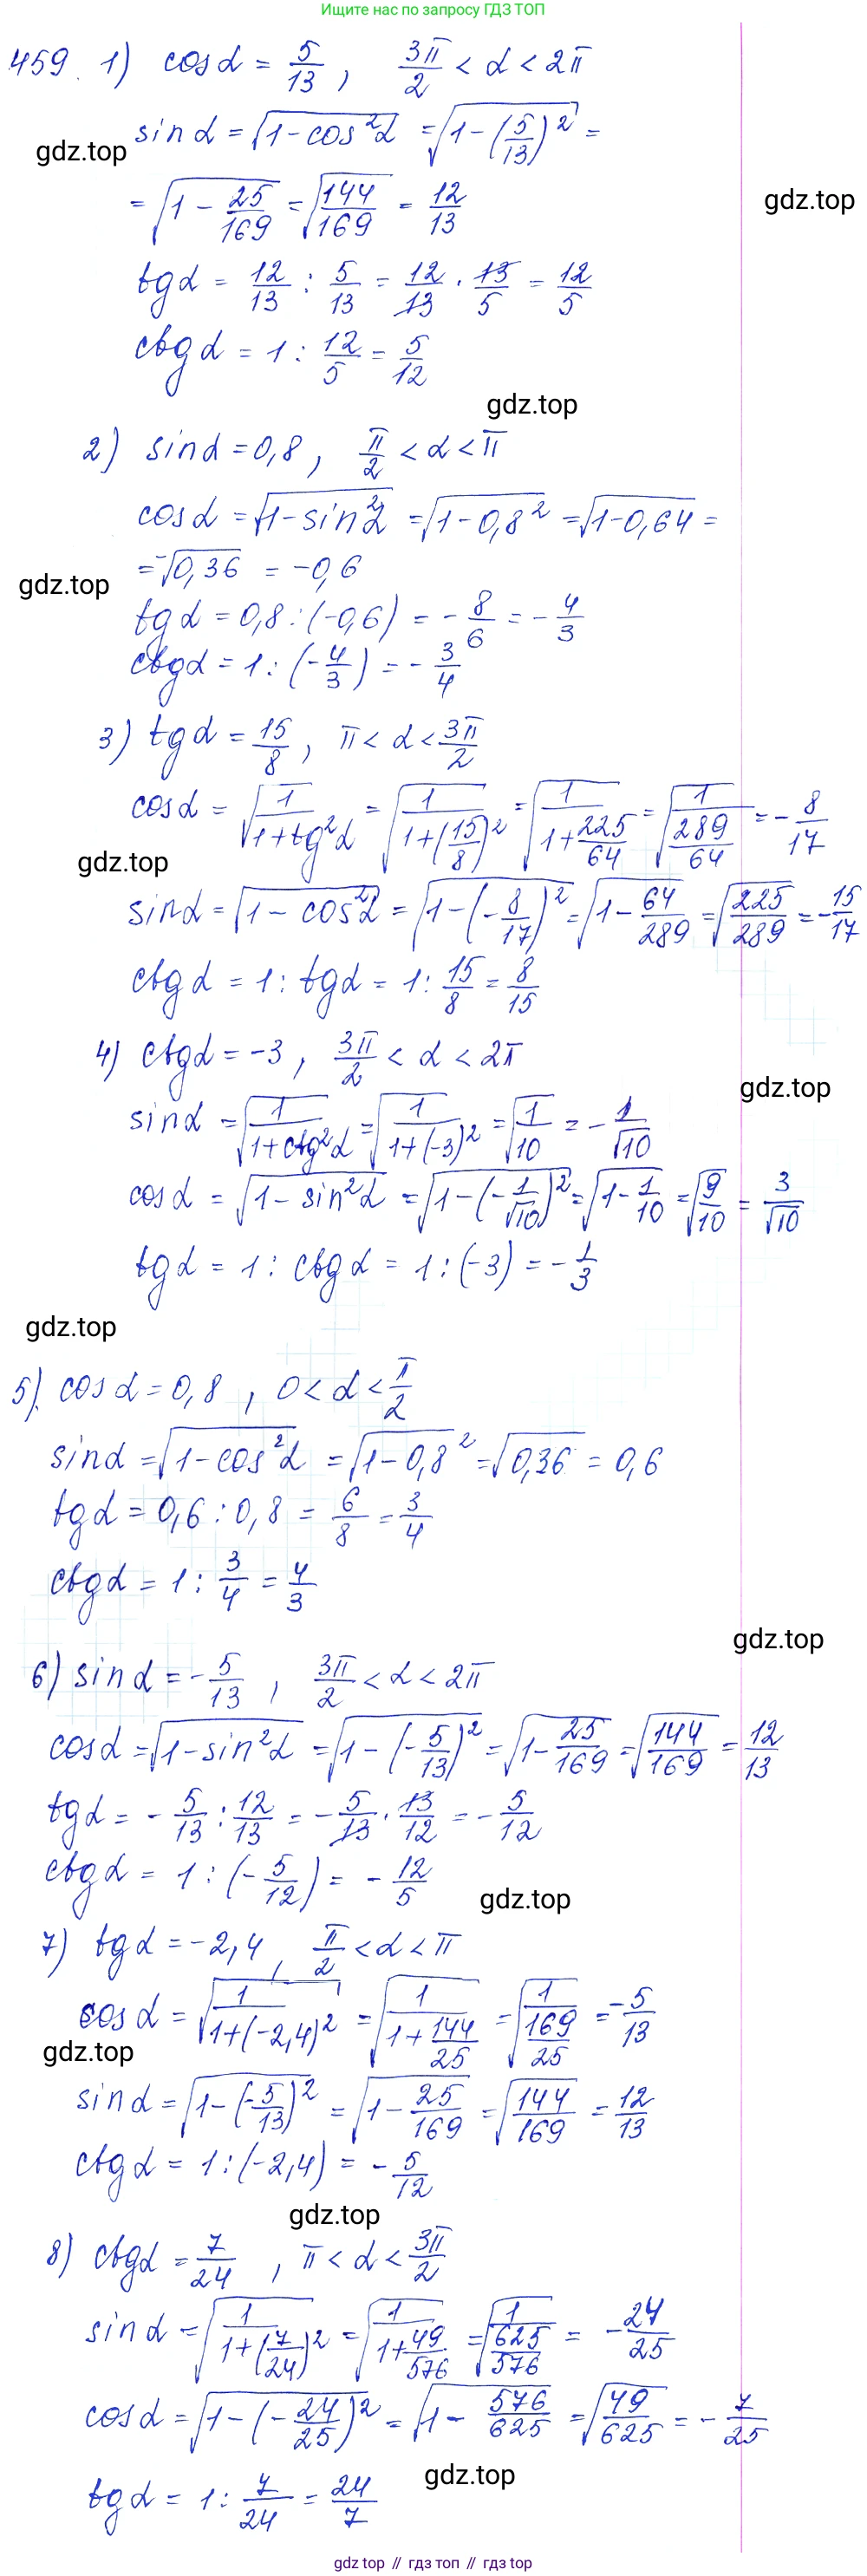 Ищите нас по запросу ГДЗ ТОП
459. 1) cos α = 5/13, 3π/2 < α < 2π
sin α = √(1 - cos²α) = √(1 - (5/13)²) =
gdz.top
= √(1 - 25/169) = √(144/169) = 12/13
gdz.top
tg α = 12/13 : 5/13 = 12/13 · 13/5 = 12/5
ctg α = 1 : 12/5 = 5/12
gdz.top
2) sin α = 0,8, π/2 < α < π
cos α = √(1 - sin²α) = √(1 - 0,8²) = √(1 - 0,64) =
= -√0,36 = -0,6
gdz.top
tg α = 0,8 : (-0,6) = -8/6 = -4/3
ctg α = 1 : (-4/3) = -3/4
3) tg α = 15/8, π < α < 3π/2
cos α = √(1/(1 + tg²α)) = √(1/(1 + (15/8)²)) = √(1/(1 + 225/64)) = √(1/(289/64)) = -8/17
gdz.top
sin α = √(1 - cos²α) = √(1 - (-8/17)²) = √(1 - 64/289) = √(225/289) = -15/17
ctg α = 1 : tg α = 1 : 15/8 = 8/15
4) ctg α = -3, 3π/2 < α < 2π
gdz.top
sin α = √(1/(1 + ctg²α)) = √(1/(1 + (-3)²)) = √(1/10) = -1/√10
cos α = √(1 - sin²α) = √(1 - (-1/√10)²) = √(1 - 1/10) = √(9/10) = 3/√10
tg α = 1 : ctg α = 1 : (-3) = -1/3
gdz.top
5). cos α = 0,8, 0 < α < π/2
sin α = √(1 - cos²α) = √(1 - 0,8²) = √0,36 = 0,6
tg α = 0,6 : 0,8 = 6/8 = 3/4
ctg α = 1 : 3/4 = 4/3
gdz.top
6) sin α = -5/13, 3π/2 < α < 2π
cos α = √(1 - sin²α) = √(1 - (-5/13)²) = √(1 - 25/169) = √(144/169) = 12/13
tg α = -5/13 : 12/13 = -5/13 · 13/12 = -5/12
ctg α = 1 : (-5/12) = -12/5
gdz.top
7) tg α = -2,4, π/2 < α < π
cos α = √(1/(1 + (-2,4)²)) = √(1/(1 + 144/25)) = √(1/(169/25)) = -5/13
gdz.top
sin α = √(1 - (-5/13)²) = √(1 - 25/169) = √(144/169) = 12/13
ctg α = 1 : (-2,4) = -5/12
gdz.top
8) ctg α = 7/24, π < α < 3π/2
sin α = √(1/(1 + (7/24)²)) = √(1/(1 + 49/576)) = √(1/(625/576)) = -24/25
cos α = √(1 - (-24/25)²) = √(1 - 576/625) = √(49/625) = -7/25
gdz.top
tg α = 1 : 7/24 = 24/7
gdz top // гдз топ // гдз top